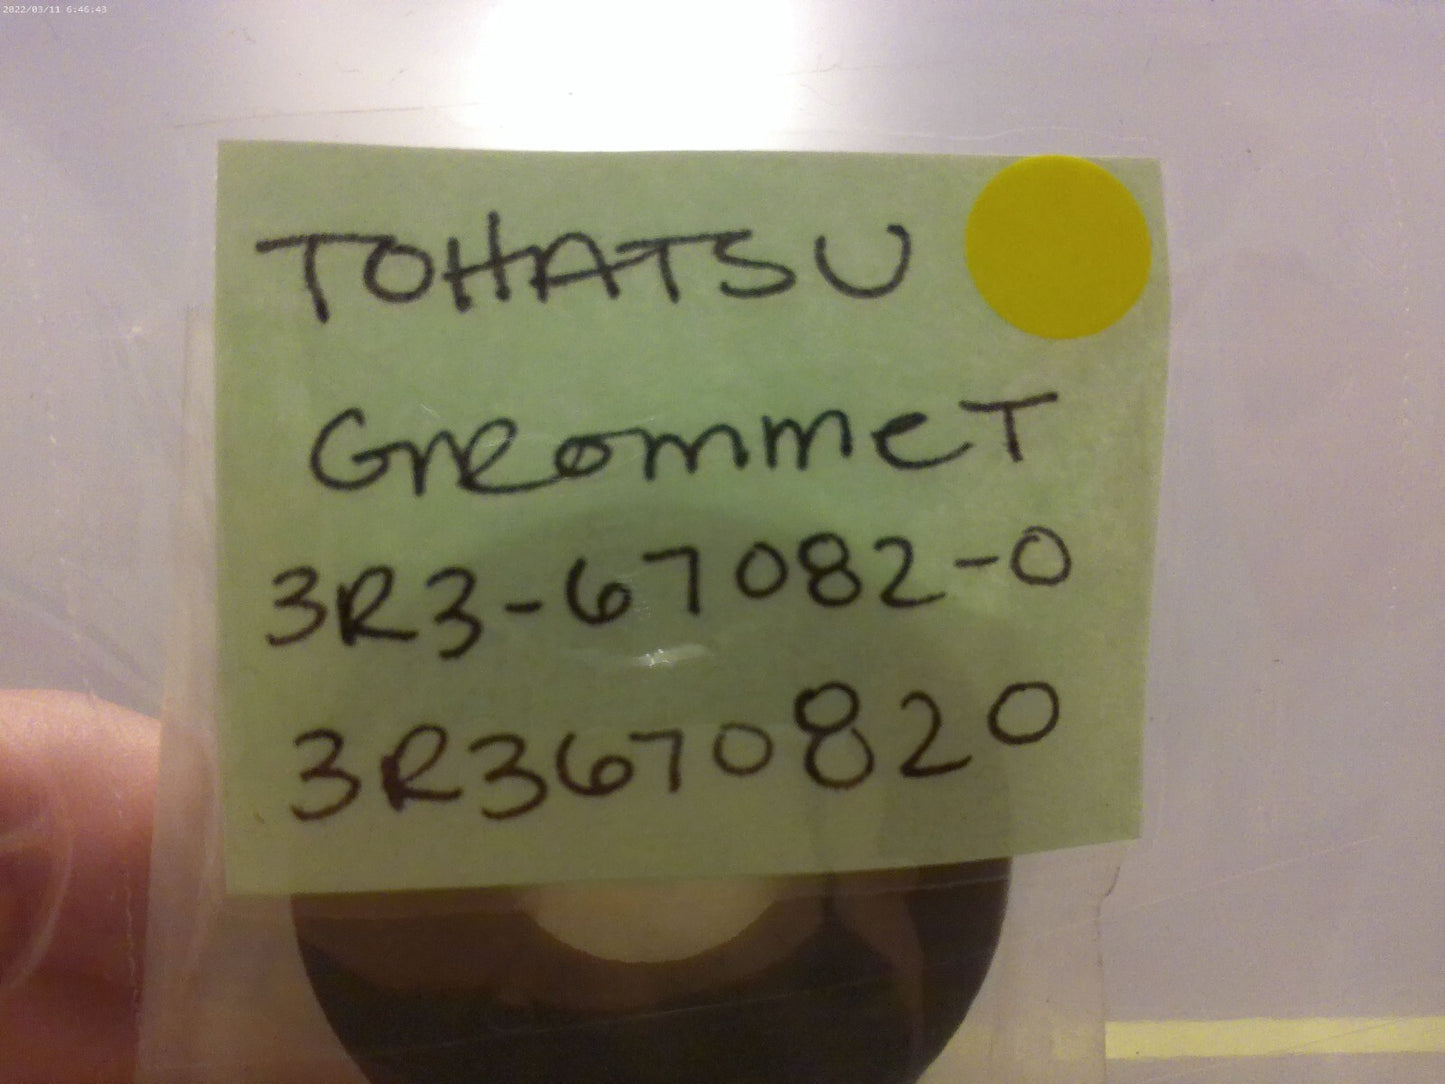 2022/03/11 6:46:43
TOHATSU
GROMMET
3R3-67082-0
3R3670820